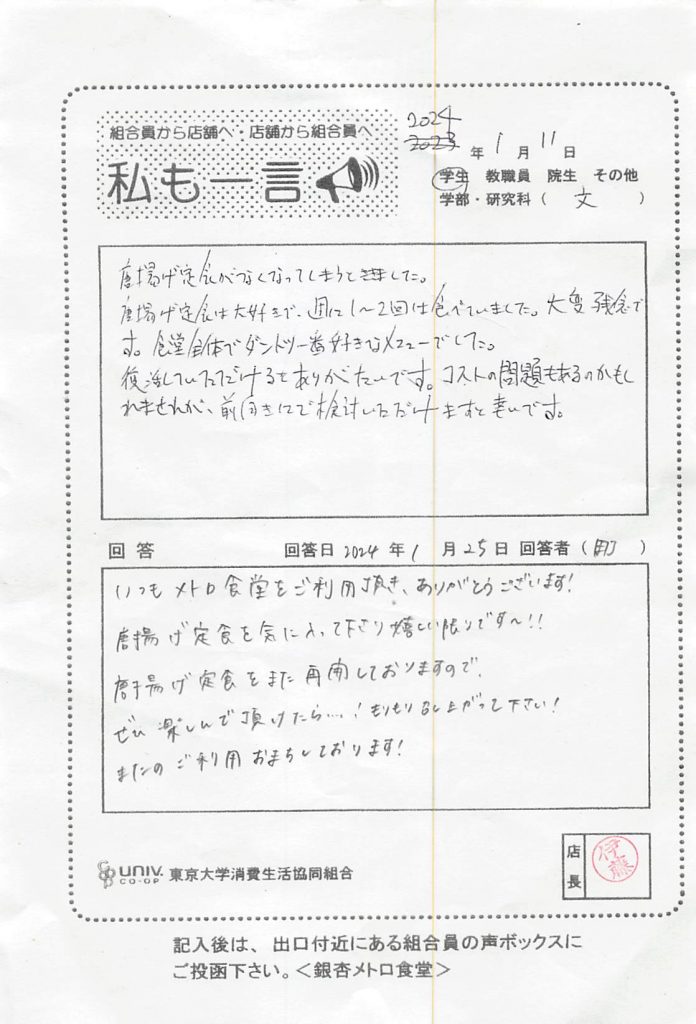 組合員から店舗へ・店舗から組合員へ
私も一言
2024
2023 年 1 月 11 日
学生 教職員 院生 その他
学部・研究科（ 文 ）
唐揚げ定食がなくなってしまうとききました。
唐揚げ定食は大好きで、週に1〜2回は食べていました。大変残念で
す。食堂全体でダントツ一番好きなメニューでした。
復活していただけるとありがたいです。コストの問題もあるのかもし
れませんが、前向きにご検討いただけますと幸いです。
回答 回答日 2024 年 1 月 25 日 回答者（ ）
いつもメトロ食堂をご利用頂き、ありがとうございます!
唐揚げ定食を気に入って下さり嬉しい限りです〜!!
唐揚げ定食をまた再開しておりますので、
ぜひ楽しんで頂けたら…!もりもり召し上がって下さい!
またのご利用おまちしております!
UNIV. CO-OP 東京大学消費生活協同組合
店長 伊藤
記入後は、出口付近にある組合員の声ボックスに
ご投函下さい。＜銀杏メトロ食堂＞